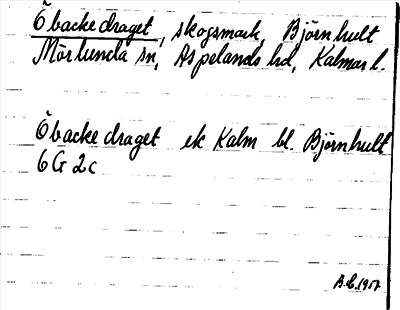 Öbackedraget, skogsmark, Björnhult
Mörlunda sn, Aspelands hd, Kalmar l.
Öbackedraget ek Kalm bl. Björnhult
6G 2c
A.C. 1957